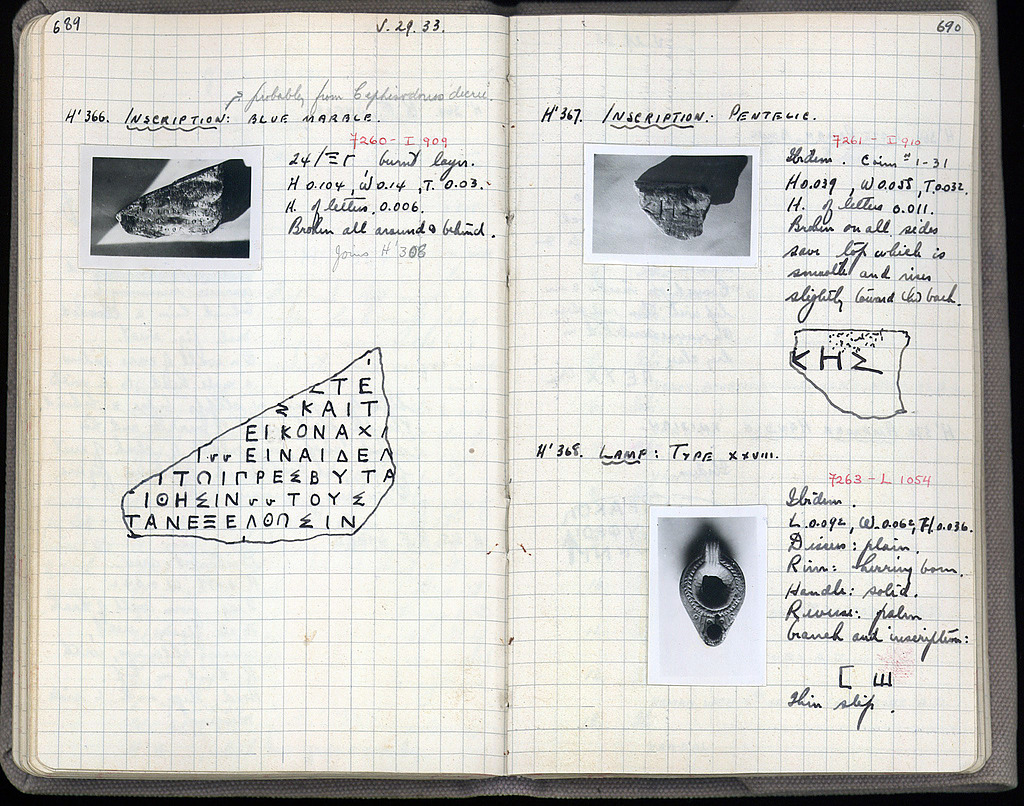 689
V. 29. 33.
probably from Cephisodorus decree.
H' 366. INSCRIPTION: BLUE MARBLE.
7260 - I 909
24/ΞΓ burnt layer.
H 0.104, W 0.14, T. 0.03.
H. of letters, 0.006.
Broken all around & behind.
Joins H' 308
ΣΤΕ
ΣΚΑΙΤ
ΕΙΚΟΝΑΧΙ
Ιvv ΕΙΝΑΙΔΕΛ
ΙΤΩΙΠΡΕΣΒΥΤΑ
ΙΘΗΣΙΝvvΤΟΥΣ
ΤΑΝΕΞΕΛΘΩΣΙΝ
690
H' 367. INSCRIPTION: PENTELIC.
7261 - I 910
Ibidem. Coins # 1-31
H 0.039, W 0.055, T. 0.032.
H. of letters 0.011.
Broken on all sides
save top which is
smooth and rises
slightly toward the back.
ΚΗΣ
H' 368. LAMP: TYPE XXVIII.
7263 - L 1054
Ibidem.
L. 0.092, W. 0.062, H. 0.036.
Discus: plain.
Rim: herring bone.
Handle: solid.
Reverse: palm
branch and inscription:
[ Ш
Thin slip.